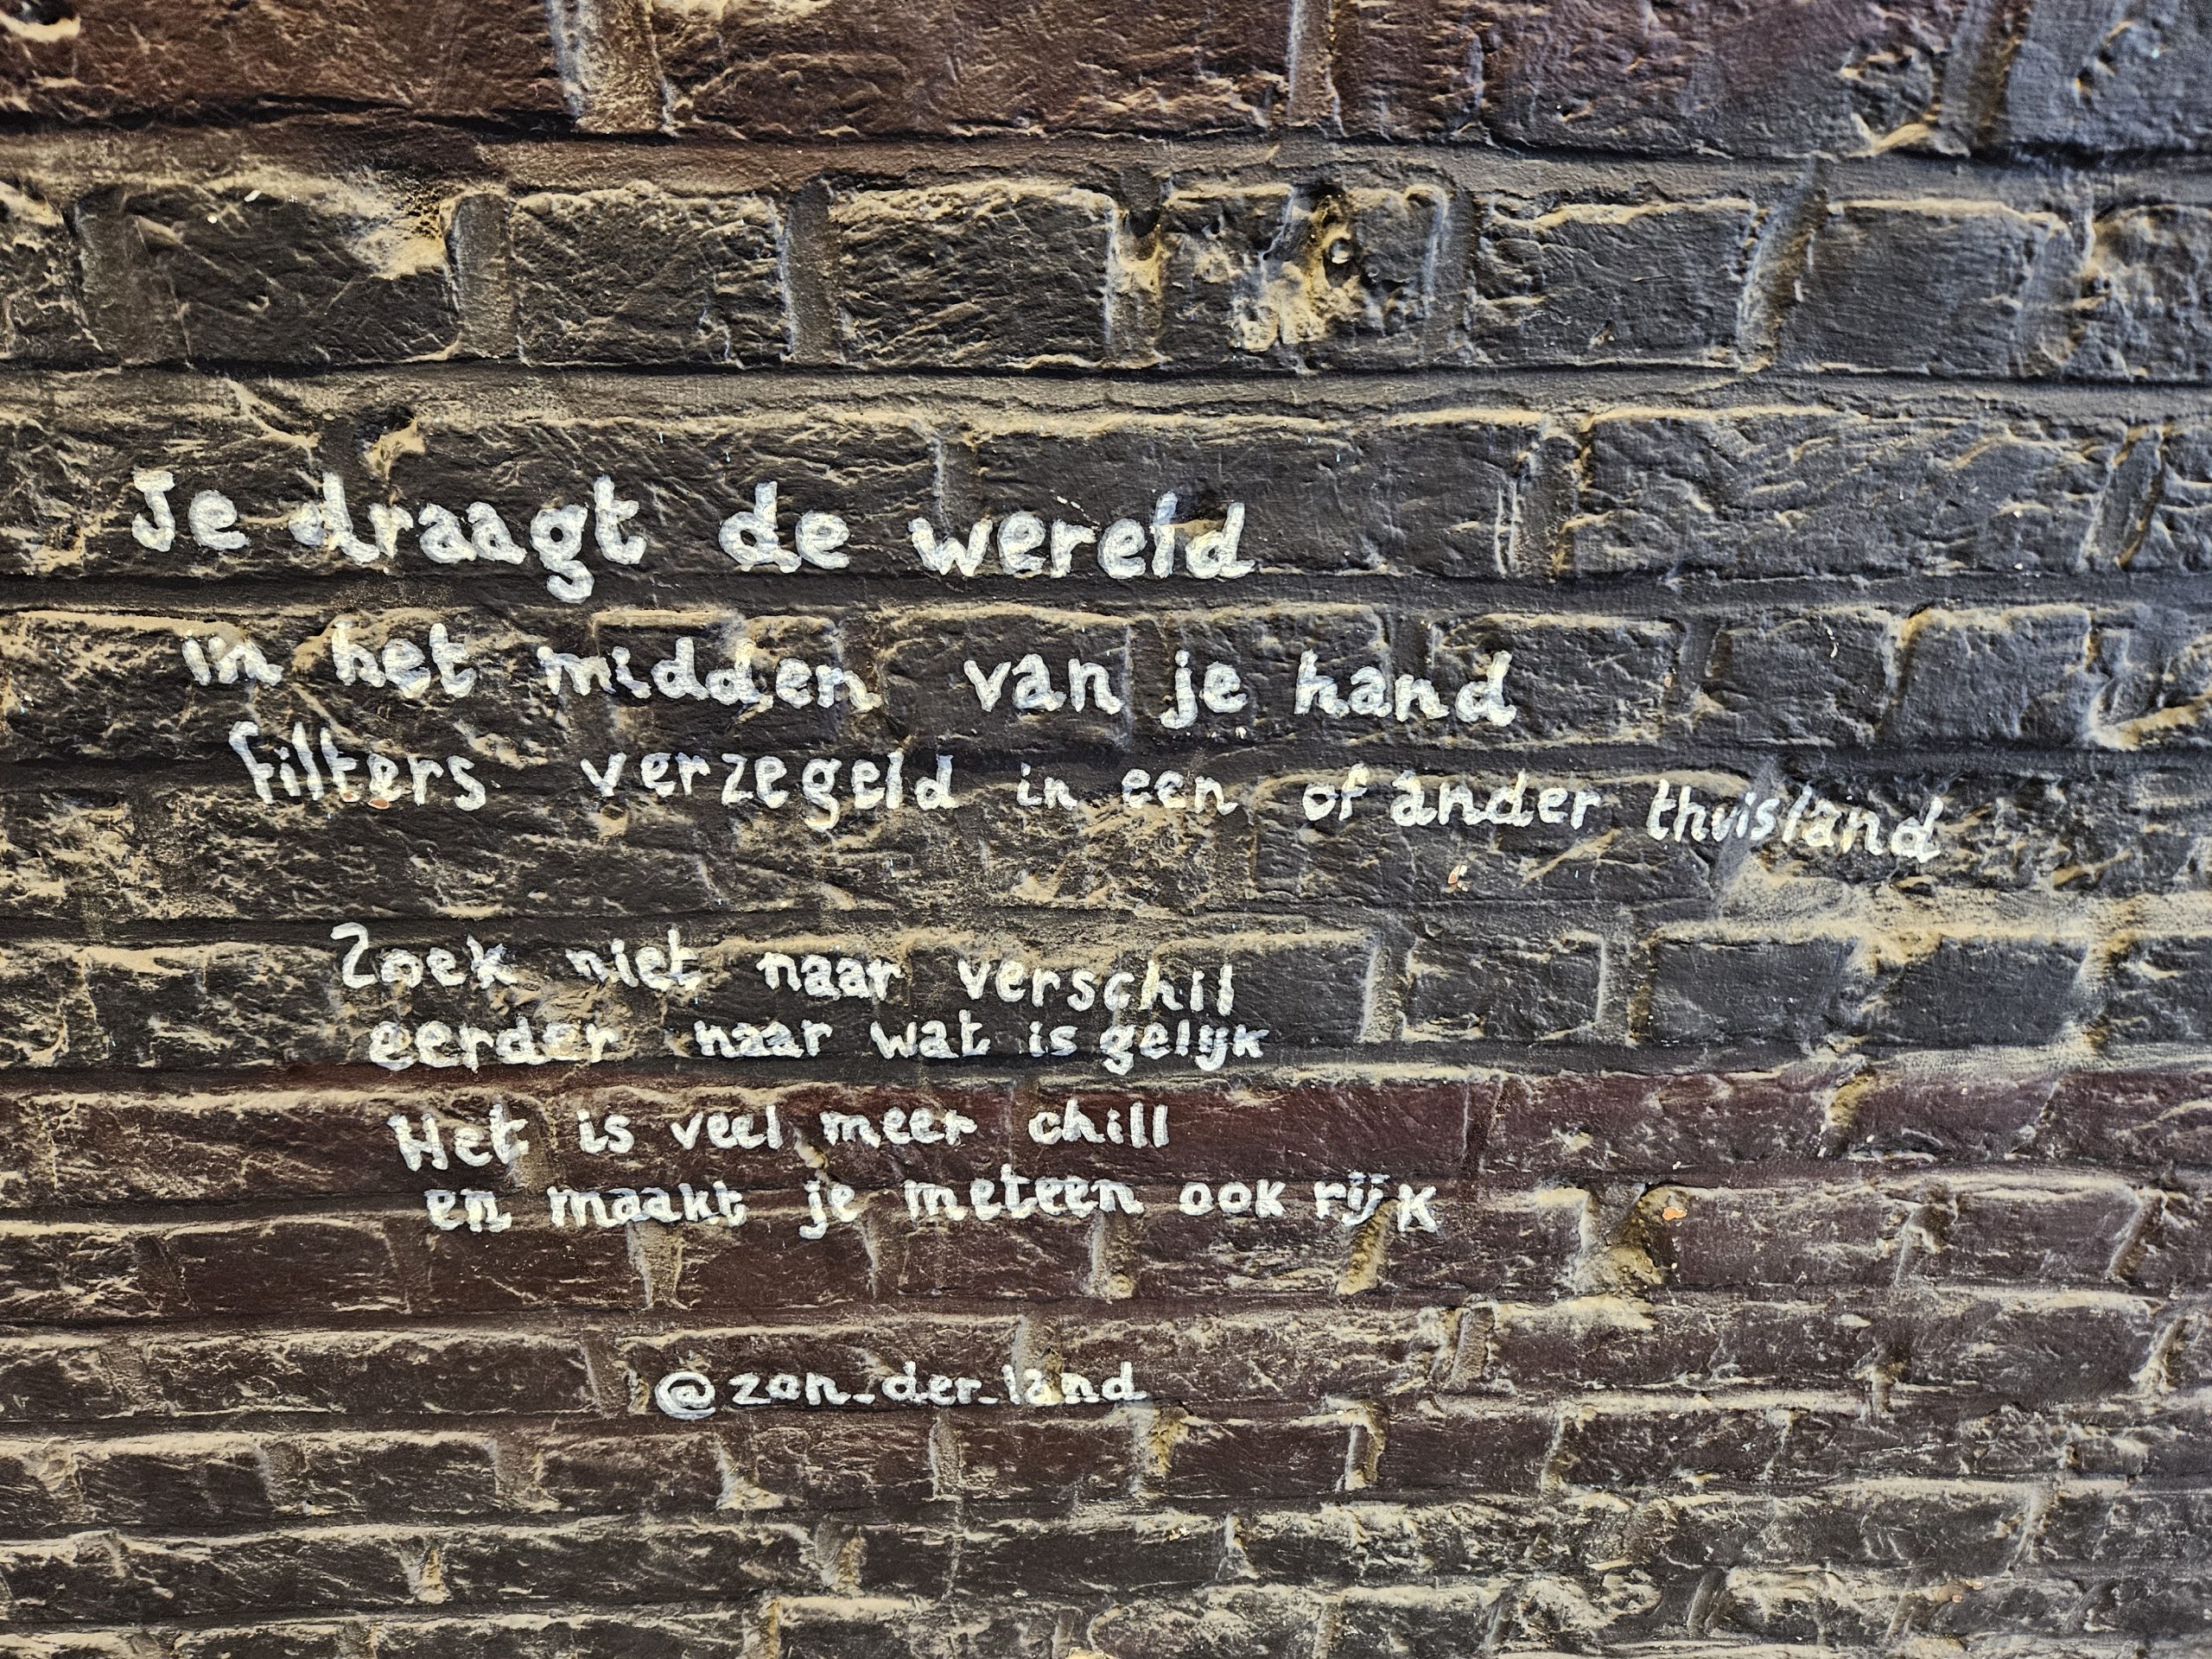 Je draagt de wereld
in het midden van je hand
filters verzegeld in een of ander thuisland
Zoek niet naar verschil
eerder naar wat is gelijk
Het is veel meer chill
en maakt je meteen ook rijk
@zon_der_land